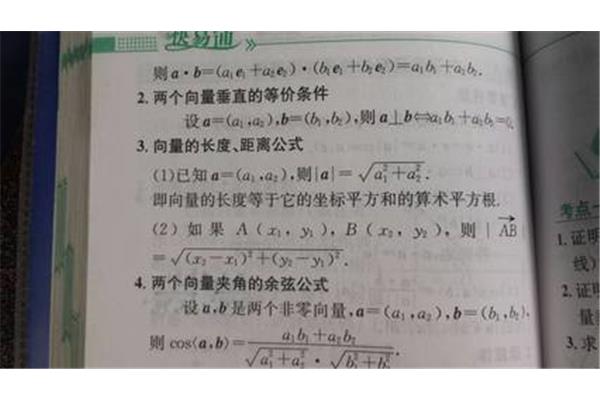 快易通
则 a·b=(a₁e₁+a₂e₂)·(b₁e₁+b₂e₂)=a₁b₁+a₂b₂.
2. 两个向量垂直的等价条件
设 a=(a₁,a₂),b=(b₁,b₂),则 a⊥b⇔a₁b₁+a₂b₂=0.
3. 向量的长度、距离公式
(1)已知 a=(a₁,a₂),则|a|=√(a₁²+a₂²).
即向量的长度等于它的坐标平方和的算术平方根.
(2)如果 A(x₁,y₁),B(x₂,y₂),则|AB→|
=√((x₂-x₁)²+(y₂-y₁)²).
4. 两个向量夹角的余弦公式
设 a,b 是两个非零向量,a=(a₁,a₂),b=(b₁,b₂),
则 cos⟨a,b⟩=(a₁b₁+a₂b₂)/(√(a₁²+a₂²)·√(b₁²+b₂²)).
考点一
1. 证明
线)
2. 证明
量
3. 求